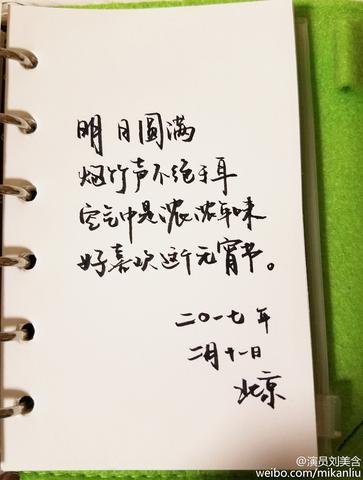 明月圆满
烟竹声不绝于耳
空气中是浓浓年味
好喜欢这个元宵节。
二〇一七年
二月十一日
北京
@演员刘美含
weibo.com/mikanliu